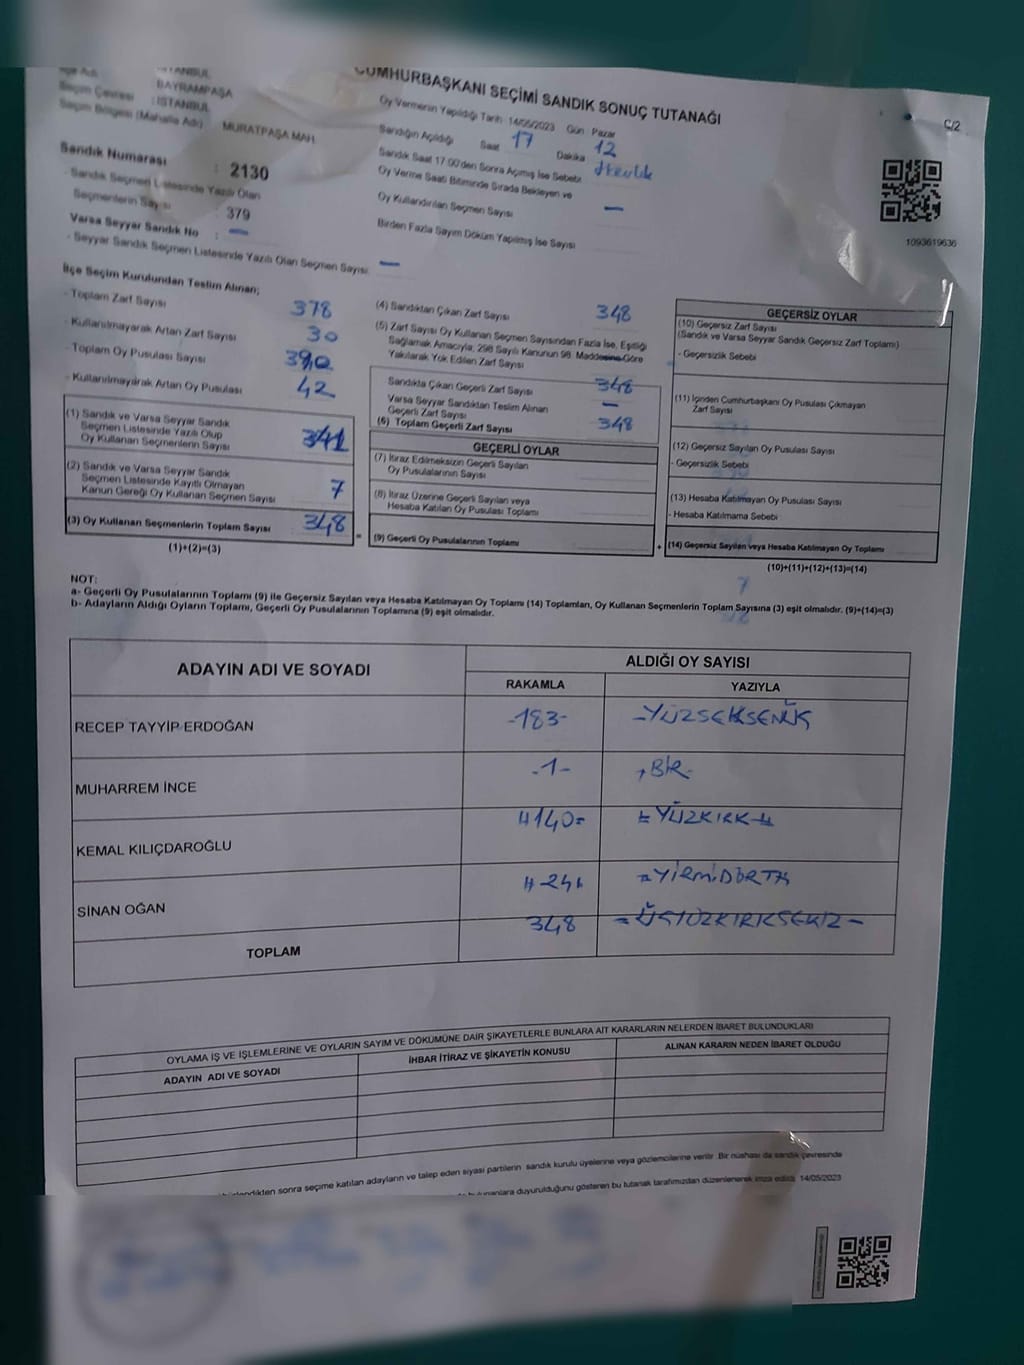 İSTANBUL
BAYRAMPAŞA
Seçim Çevresi : İSTANBUL
Seçim Bölgesi (Mahalle Adı) MURATPAŞA MAH.
CUMHURBAŞKANI SEÇİMİ SANDIK SONUÇ TUTANAĞI
C/2
Oy Vermenin Yapıldığı Tarih 14/05/2023 Gün Pazar
Sandığın Açıldığı Saat 17 Dakika 12
Sandık Saat 17.00'den Sonra Açımış İse Sebebi
Oy Verme Saati Bitiminde Sırada Bekleyen ve
Oy Kullandırılan Seçmen Sayısı —
Birden Fazla Sayım Döküm Yapılmış İse Sayısı
1093619636
Sandık Numarası : 2130
- Sandık Seçmen Listesinde Yazılı Olan
Seçmenlerin Sayısı : 379
Varsa Seyyar Sandık No : —
- Seyyar Sandık Seçmen Listesinde Yazılı Olan Seçmen Sayısı —
İlçe Seçim Kurulundan Teslim Alınan;
- Toplam Zarf Sayısı 378
- Kullanılmayarak Artan Zarf Sayısı 30
- Toplam Oy Pusulası Sayısı
- Kullanılmayarak Artan Oy Pusulası 42
(1) Sandık ve Varsa Seyyar Sandık
Seçmen Listesinde Yazılı Olup
Oy Kullanan Seçmenlerin Sayısı 341
(2) Sandık ve Varsa Seyyar Sandık
Seçmen Listesinde Kayıtlı Olmayan
Kanun Gereği Oy Kullanan Seçmen Sayısı 7
(3) Oy Kullanan Seçmenlerin Toplam Sayısı 348
(1)+(2)=(3)
(4) Sandıktan Çıkan Zarf Sayısı 348
(5) Zarf Sayısı Oy Kullanan Seçmen Sayısından Fazla İse, Eşitliği
Sağlamak Amacıyla, 298 Sayılı Kanunun 98. Maddesine Göre
Yakılarak Yok Edilen Zarf Sayısı
Sandıkta Çıkan Geçerli Zarf Sayısı 348
Varsa Seyyar Sandıktan Teslim Alınan
Geçerli Zarf Sayısı —
(6) Toplam Geçerli Zarf Sayısı 348
GEÇERLİ OYLAR
(7) İtiraz Edilmeksizin Geçerli Sayılan
Oy Pusulalarının Sayısı
(8) İtiraz Üzerine Geçerli Sayılan veya
Hesaba Katılan Oy Pusulası Toplamı
(9) Geçerli Oy Pusulalarının Toplamı
GEÇERSİZ OYLAR
(10) Geçersiz Zarf Sayısı
(Sandık ve Varsa Seyyar Sandık Geçersiz Zarf Toplamı)
- Geçersizlik Sebebi
(11) İçinden Cumhurbaşkanı Oy Pusulası Çıkmayan
Zarf Sayısı
(12) Geçersiz Sayılan Oy Pusulası Sayısı
- Geçersizlik Sebebi
(13) Hesaba Katılmayan Oy Pusulası Sayısı
- Hesaba Katılmama Sebebi
(14) Geçersiz Sayılan veya Hesaba Katılmayan Oy Toplamı
(10)+(11)+(12)+(13)=(14)
NOT:
a- Geçerli Oy Pusulalarının Toplamı (9) ile Geçersiz Sayılan veya Hesaba Katılmayan Oy Toplamı (14) Toplamları, Oy Kullanan Seçmenlerin Toplam Sayısına (3) eşit olmalıdır. (9)+(14)=(3)
b- Adayların Aldığı Oyların Toplamı, Geçerli Oy Pusulalarının Toplamına (9) eşit olmalıdır.
ADAYIN ADI VE SOYADI
ALDIĞI OY SAYISI
RAKAMLA YAZIYLA
RECEP TAYYİP ERDOĞAN -183-
MUHARREM İNCE -1- BİR-
KEMAL KILIÇDAROĞLU 140= YÜZKIRK
SİNAN OĞAN 24 YİRMİDÖRT
TOPLAM 348 = ÜÇYÜZKIRKSEKİZ -
OYLAMA İŞ VE İŞLEMLERİNE VE OYLARIN SAYIM VE DÖKÜMÜNE DAİR ŞİKAYETLERLE BUNLARA AİT KARARLARIN NELERDEN İBARET BULUNDUKLARI
ADAYIN ADI VE SOYADI İHBAR İTİRAZ VE ŞİKAYETİN KONUSU ALINAN KARARIN NEDEN İBARET OLDUĞU
sonra seçime katılan adayların ve talep eden siyasi partilerin sandık kurulu üyelerine veya gözlemcilerine verilir. Bir nüshası da sandık çevresinde
bulunanlara duyurulduğunu gösteren bu tutanak tarafımızdan düzenlenerek imza edildi. 14/05/2023